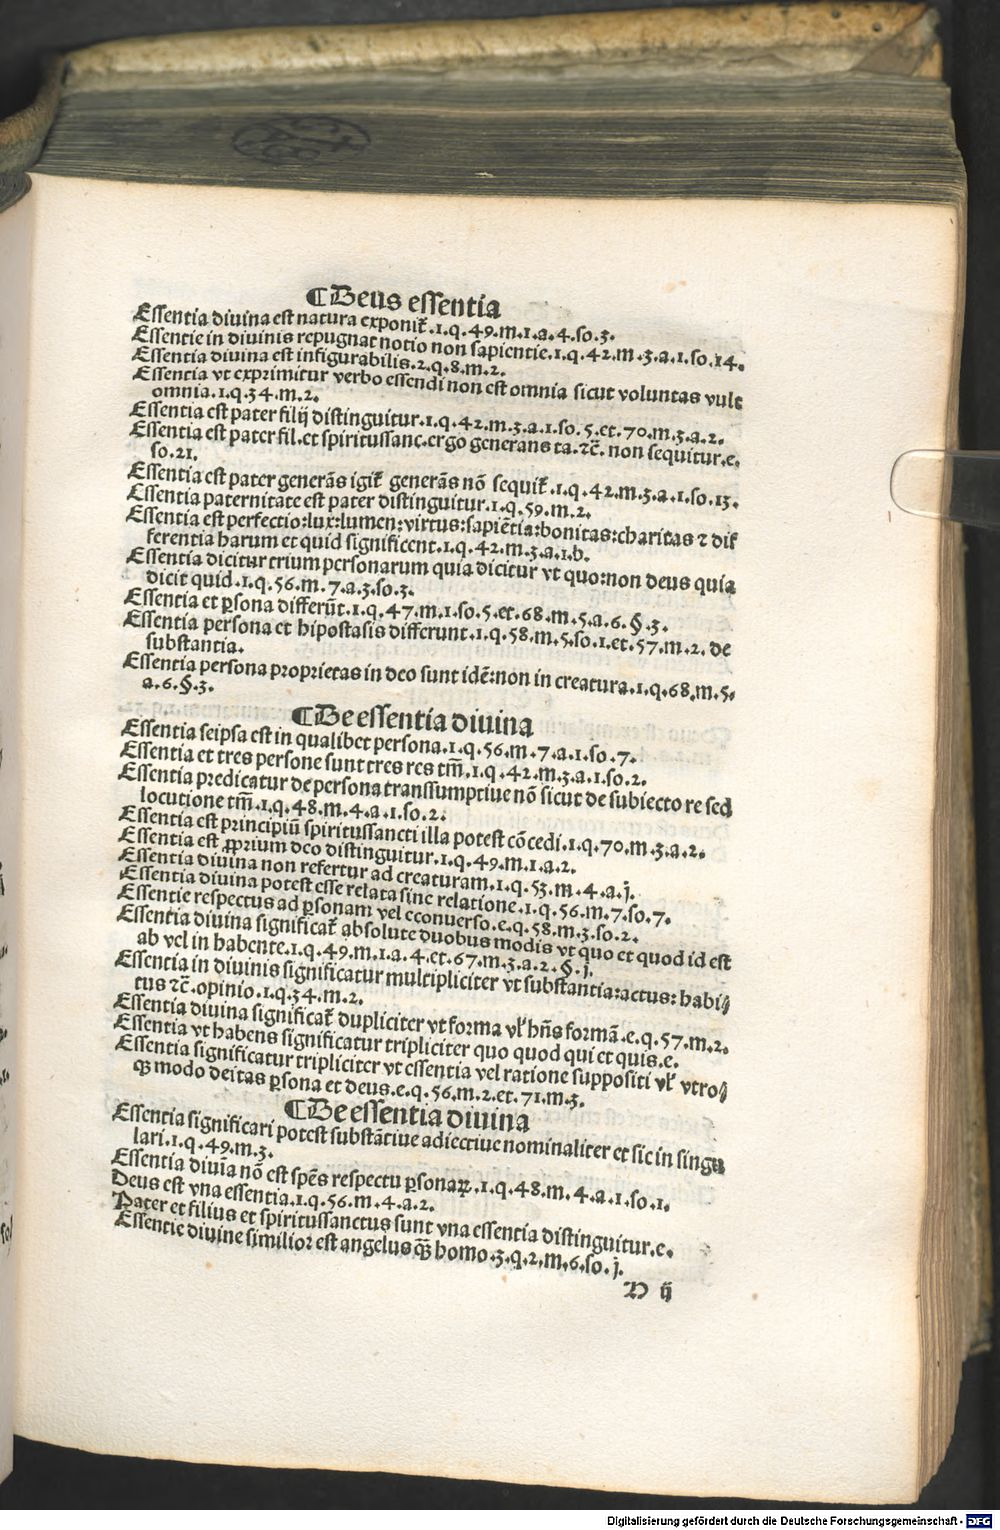 ¶ Deus essentia
Essentia diuina est natura exponit̃.1.q.49.m.1.a.4.so.3.
Essentie in diuinis repugnat notio non sapientie.1.q.42.m.3.a.1.so.14.
Essentia diuina est infigurabilis.2.q.8.m.2.
Essentia vt exprimitur verbo essendi non est omnia sicut voluntas vult
omnia.1.q.34.m.2.
Essentia est pater filij distinguitur.1.q.42.m.3.a.1.so.5.et.70.m.3.a.2.
Essentia est pater fil.et spiritussanc.ergo generans ta.⁊c̃. non sequitur.e.
so.21.
Essentia est pater generãs igit̃ generãs nõ sequit̃.1.q.42.m.3.a.1.so.13.
Essentia paternitate est pater distinguitur.1.q.59.m.2.
Essentia est perfectio:lux:lumen:virtus:sapiẽtia:bonitas:charitas ⁊ dif
ferentia harum et quid significent.1.q.42.m.3.a.1.b.
Essentia dicitur trium personarum quia dicitur vt quo:non deus quia
dicit quid.1.q.56.m.7.a.3.so.3.
Essentia et ꝑsona differũt.1.q.47.m.1.so.5.et.68.m.5.a.6.§.3.
Essentia persona et hipostasis differunt.1.q.58.m.5.so.1.et.57.m.2. de
substantia.
Essentia persona proprietas in deo sunt idẽ:non in creatura.1.q.68.m.5.
a.6.§.3.
¶ De essentia diuina
Essentia seipsa est in qualibet persona.1.q.56.m.7.a.1.so.7.
Essentia et tres persone sunt tres res tm̃.1.q.42.m.3.a.1.so.2.
Essentia predicatur de persona transsumptiue nõ sicut de subiecto re sed
locutione tm̃.1.q.48.m.4.a.1.so.2.
Essentia est principiũ spiritussancti illa potest cõcedi.1.q.70.m.3.a.2.
Essentia est ꝓprium deo distinguitur.1.q.49.m.1.a.2.
Essentia diuina non refertur ad creaturam.1.q.53.m.4.a.j.
Essentia diuina potest esse relata sine relatione.1.q.56.m.7.so.7.
Essentie respectus ad ꝑsonam vel econuerso.e.q.58.m.3.so.2.
Essentia diuina significat̃ absolute duobus modis vt quo et quod id est
ab vel in habente.1.q.49.m.1.a.4.et.67.m.3.a.2.§.j.
Essentia in diuinis significatur multipliciter vt substantia:actus: habi⸗
tus ⁊c̃.opinio.1.q.34.m.2.
Essentia diuina significat̃ dupliciter vt forma vl̓ hñs formã.e.q.57.m.2.
Essentia vt habens significatur tripliciter quo quod qui et quis.e.
Essentia significatur tripliciter vt essentia vel ratione suppositi vl̓ vtro⸗
qꝫ modo deitas ꝑsona et deus.e.q.56.m.2.et.71.m.3.
¶ De essentia diuina
Essentia significari potest substãtiue adiectiue nominaliter et sic in singu
lari.1.q.49.m.3.
Essentia diuĩa nõ est spẽs respectu ꝑsonaꝝ.1.q.48.m.4.a.1.so.1.
Deus est vna essentia.1.q.56.m.4.a.2.
Pater et filius et spiritussanctus sunt vna essentia distinguitur.e.
Essentie diuine similior est angelus qꝫ̃ homo.3.q.2.m.6.so.j.
D ij
Digitalisierung gefördert durch die Deutsche Forschungsgemeinschaft - DFG